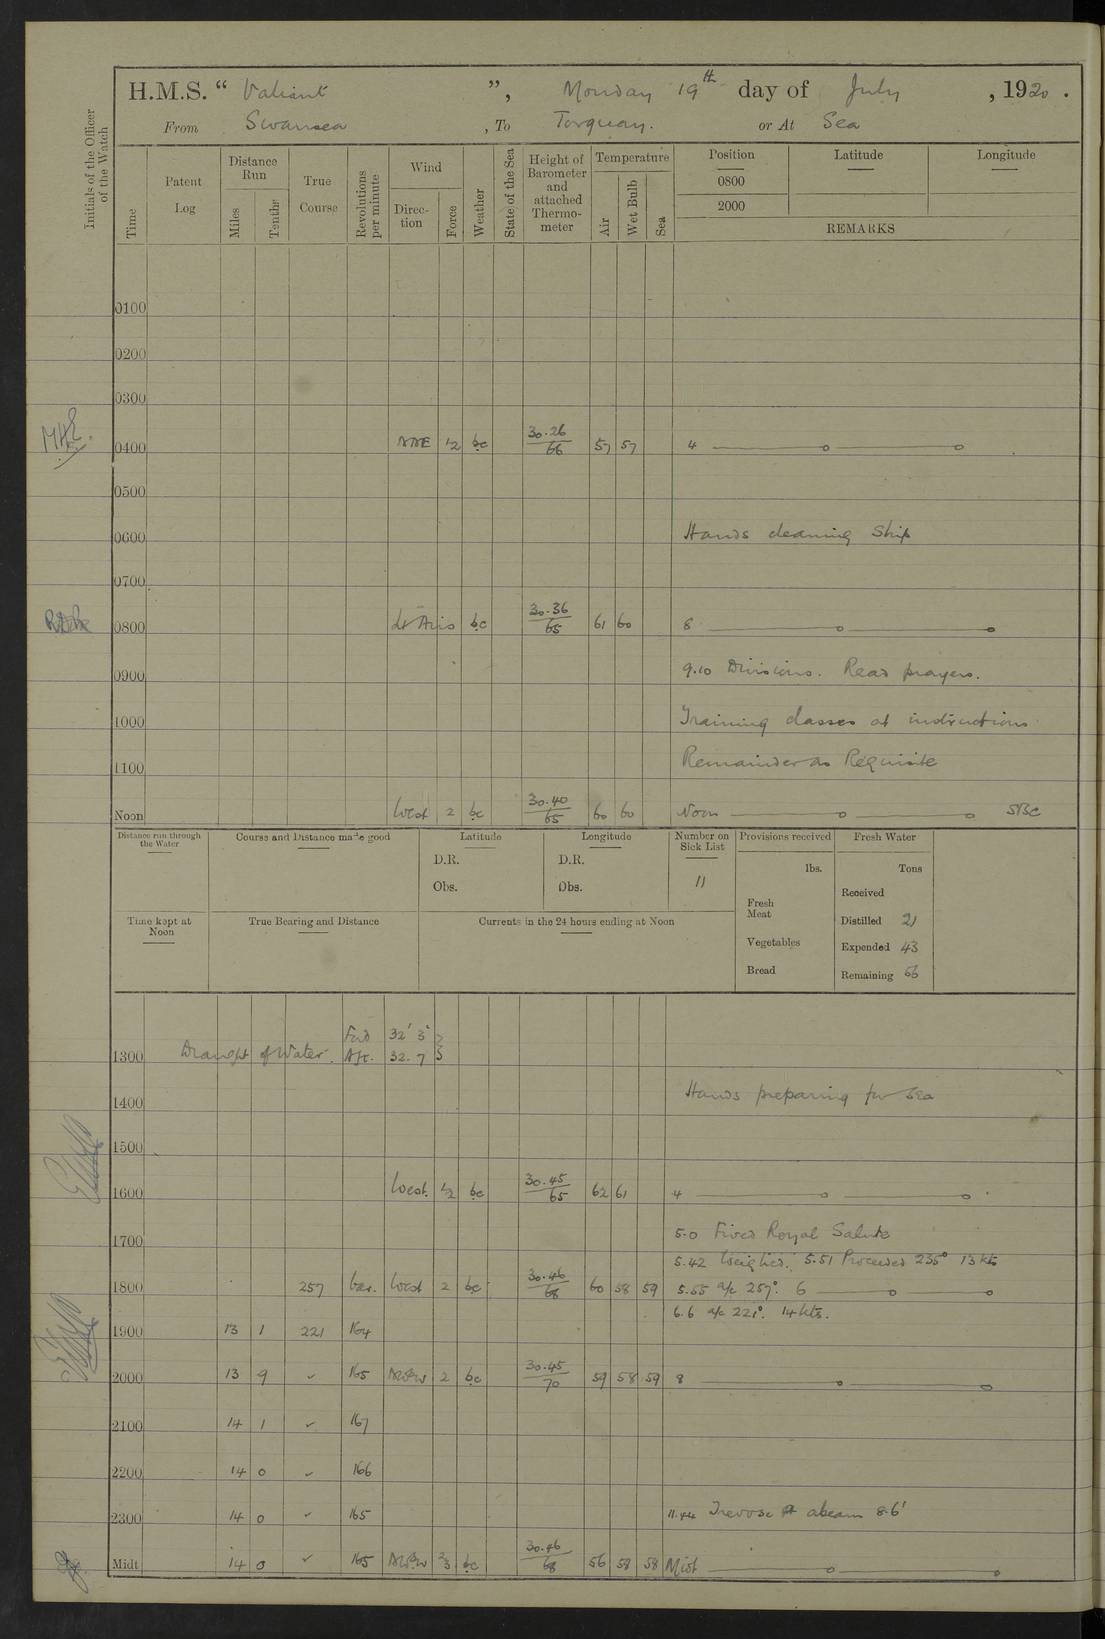 H.M.S. “ Valiant ”, Monday 19th day of July , 1920 .
From Swansea , To Torquay. or At Sea
Initials of the Officer of the Watch
Time
Patent Log
Distance Run
Miles
Tenths
True Course
Revolutions per minute
Wind
Direction
Force
Weather
State of the Sea
Height of Barometer and attached Thermometer
Temperature
Air
Wet Bulb
Sea
Position
0800
2000
Latitude
Longitude
REMARKS
0100
0200
0300
0400 NNE 1/2 bc 30.26 66 57 57 4
0500
0600 Hands cleaning Ship
0700
0800 Lt Airs bc 30.36 65 61 60 8
0900 9.10 Divisions. Read prayers.
1000 Training classes at instructions
1100 Remainder as Requisite
Noon West 2 bc 30.40 65 60 60 Noon
Distance run through the Water
Course and Distance made good
Latitude
D.R.
Obs.
Longitude
D.R.
Obs.
Number on Sick List
11
Provisions received
lbs.
Fresh Meat
Vegetables
Bread
Fresh Water
Tons
Received
Distilled 21
Expended 43
Remaining
Time kept at Noon
True Bearing and Distance
Currents in the 24 hours ending at Noon
1300 Draught of Water. Ford 32' 3" Aft. 32. 7
1400 Hands preparing for Sea
1500
1600 West. 1/2 bc 30.45 65 62 61 4
5.0 Fired Royal Salute
1700
5.42 Weighed. 5.51 Proceeded 235° 13 kts
1800 257 Var. West 2 bc 30.46 68 60 58 59 5.55 a/c 257°. 6
6.6 a/c 221°. 14 kts.
1900 13 1 221 164
2000 13 9 ✓ 165 NWBW 2 bc 30.45 70 59 58 59 8
2100 14 1 ✓ 167
2200 14 0 ✓ 166
2300 14 0 ✓ 165 11.44 Trevose Pt abeam 8.6'
Midt 14 0 ✓ 165 NWBW 2/3 bc 30.46 68 56 58 58 Midt